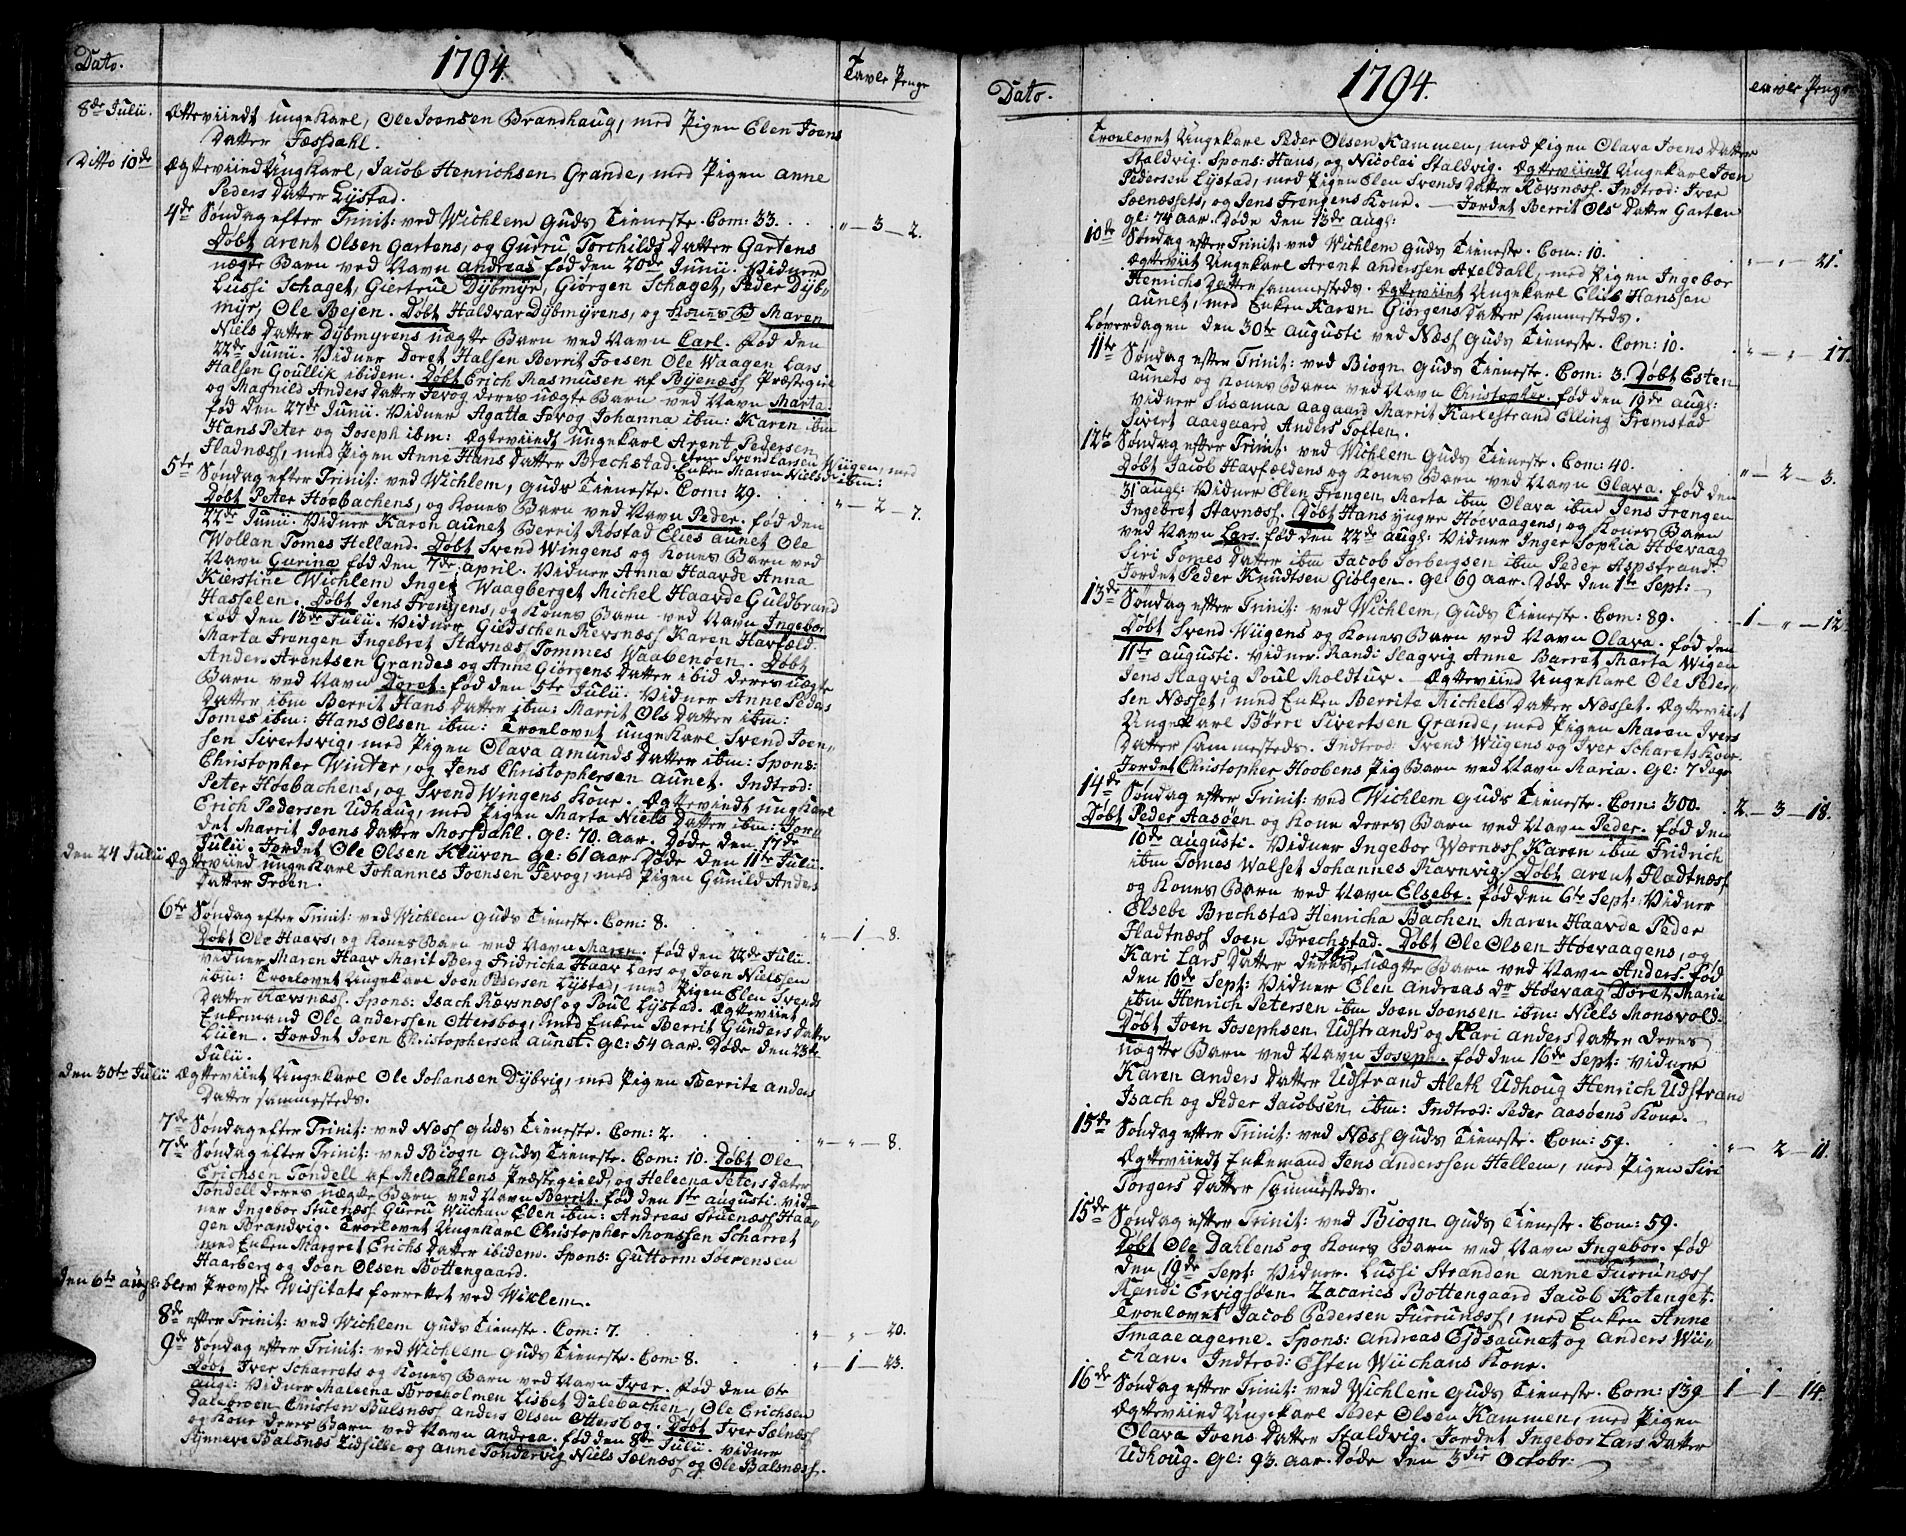 Dato. 1794. Tavle Penge
8de Julii. Ætteviindt ungeKarl, Ole Joensen Brandhaug, med Pigen Elen Joens
Datter Fæssdahl.
Ditto 10de Ægteviied UngKarl, Jacob Henrichsen Grande, med Pigen Anne
Peders Datter Lÿstad.
4de Søndag efter Trinit: ved Wichlem Guds Tieneste. Com: 33. " — 3 — 2.
Døbt Arent Olsen Gartens, og Gurru Torchilds Datter Gartens
uægte Barn ved Navn Andreas fød den 20de Junii. Vidner
Lussi Schaget, Giertrue Dÿbmÿr, Giörgen Schaget, Peder Dÿb-
mÿr, Ole Bejen. Døbt Haldvar Dÿbmÿrens, og Maren
Niels Datter Dÿbmÿrens uægte Barn ved Navn Carl. fød den
22de Junii. Vidner Doret Halsen Berrit Foesen Ole Waagen Lars
Halsen Goullik ibidem. Døbt Erich Rasmusen af Bÿenæss Præstegiel
og Magnild Anders Datter Fevog deres uægte Barn ved Navn Marta.
fød den 27de Junii. Vidner Agatta Fevog Johanna ibm: Karen ibm
Hans Peter og Joseph ibm: Ægteviiedt ungeKarl Arent Pedersen
Fladnæss, med Pigen Anne Hans Datter Brechstad. item Svend Larsen Wiigen, med
Enken Maren Niels D: ibm:
5te Søndag efter Trinit: ved Wichlem, Guds Tieneste. Com: 29. " — 2 — 7.
Døbt Peter Hoebachens, og Kones Barn ved Navn Peder. fød den
22de Junii. Vidner Karen Aunet Berrit Røstad Elies Aunet Ole
Wollan Tomes Helland. Døbt Svend Wingens og Kones Barn ved
Navn Gurina fød den 7de April. Vidner Anna Haavde Anna
Kierstine Wichlem Inger Waagberget Michel Haavde Guldbrand
Hasselen. Døbt Jens Frengens, og Kones Barn ved Navn Ingebor
fød den 13de Julii. Vidner Giedschen Revsnæss Karen Havfæld
Marta Frengen Ingebret Stavnæss Tommes Waabenøen. Døbt
Anders Arentsen Grandes og Anne Giörgens Datter ibid deres uægte
Barn ved Navn Doret. fød den 5te Julii. Vidner Anne Peders
Datter ibm Berrit Hans Datter ibm: Marrit Ols Datter ibm:
Tomes ibm: Hans Olsen ibm: Troelovet ungeKarl Svend Joen-
sen Sivertsvig, med Pigen Olava Amunds Datter ibm: Spons:
Christopher Winter, og Jens Christophersen Aunet. Indtrod:
Peter Hoebachens, og Svend Wingens Kone. Ægteviedt ungKarl
Erich Pedersen Udhaug, med Pigen Marta Niels Datter ibm: Jor-
det Marrit Joens Datter Mossdahl. gl: 70. Aar. Døde den 17de
Julii. Jordet Ole Olsen Klüven gl: 61 Aar. Døde den 11te Julii.
den 24 Julii Ægteviied ungeKarl Johannes Joensen Fevog, med Pigen Gunild Anders
Datter Troen.
6te Søndag efter Trinit: ved Wichlem Guds Tieneste. Com: 8. " — 1 — 8.
Døbt Ole Haavs, og Kones Barn ved Navn Maren. fød den 22de Julii.
Vedner Maren Haav Marit Berg Fridricha Haav Lars og Joen Nielssen
ibm: Troelovet UngeKarl Joen Pedersen Lÿstad, med Pigen Elen Svends
Datter Rævsnæss. Spons: Isach Rævsnæss og Poul Lÿstad. Ægteviiet
Enkemand Ole Anderssen Ottersbog, med Enken Berrit Gunders Datter
Liien. Jordet Joen Christophersen Aunet. gl: 54 Aar. Døde den 23de
Julii.
den 30te Julii Ægteviiet UngeKarl Ole Johansen Dÿbvig, med Pigen Berrite Anders
Datter sammesteds.
7de Søndag efter Trinit: ved Næss Guds Tieneste. Com: 2.
7de Søndag efter Trinit: ved Biogn Guds Tieneste. Com: 10. Døbt Ole " — " — 8.
Erichsen Tondell af Meldahlens Præstegield, og Heleena Peters Dater
Tondell deres uægte Barn ved Navn Berrit. fød den 1te Augusti. Vid-
ner Ingebor Stuenæss Gurru Wüchan Elen ibm: Andreas Stuenæss Haa-
gen Brandvig. Troelovet UngeKarl Christopher Monssen Scharret
med Enken Margret Erichs Datter ibidem. Spons: Guttorm Søerensen
Haarberg og Joen Olsen Bottengaard.
den 6te Augl: blev Provste Wissitats forrettet ved Wiklem.
8de efter Trinit: ved Wichlem Guds Tieneste. Com: 7. " " — 20.
9de Søndag efter Trinit: ved Wichlem Guds Tieneste. Com: 8. " — 1 — 23.
Døbt Iver Scharrets og Kones Barn ved Navn Iver. fød den 6te
Augl: Vidner Maleena Broeholmen Lisbet Dalebachen, Ole Erichsen
Dalebroen Christen Balsnæss Anders Olsen Ottersbog. Døbt Iver Sælnæss
og Kone deres Barn ved Navn Andrea. fød den 8de Julii. Vidner
Sÿnneve Balsnæs Zidsille og Anne Tondervig Niels Sælnæss og Ole Balsnæss.
Dato. 1794. Tavle Penge
Troelovet UngeKarl Peder Olsen Kammen, med Pigen Olava Joens Datter
Staldvig. Spons: Hans, og Nicolai Staldvig. Ægteviiedt UngeKarl Joen
Pedersen Lÿstad, med Pigen Elen Svends Datter Rævsnæss. Indtrod: Iver
Soenæssets, og Jens Frengens Kone. — Jordet Berrit Ols Datter Garten
gl: 74 Aar. Døde den 13de Augl:
10de Søndag efter Trinit: ved Wichlem Guds Tieneste. Com: 10. " — " — 21.
Ægteviit UngeKarl Arent Anderssen Axeldahl, med Pigen Ingebor
Henrichs Datter sammesteds. Ægteviiet UngeKarl Elias Hanssen
Aunet, med Enken Karen Giörgens Datter sammesteds.
Løverdagen den 30te Augusti ved Næss Guds Tieneste. Com: 10.
11te Søndag efter Trinit: ved Biogn Guds Tieneste. Com: 3. Døbt Esten " — " — 17.
Aunets og Kones Barn ved Navn Christopher. fød den 19de Augl:
Vidner Susanna Aagaard Marrit Karlestrand Elling Fremstad
Sivert Aaegaard Anders Toften.
12te Søndag efter Trinit: ved Wichlem Guds Tieneste. Com: 40.
Døbt Jacob Havfældens og Kones Barn ved Navn Olava. fød den " — 2 — 3.
31 Augl: Vidner Elen Frengen Marta ibm Olava ibm Jens Frengen
Ingebret Stavnæss. Døbt Hans yngre Hoevaagens, og Kones Barn
ved Navn Lars. fød den 22de Augl: Vidner Inger Sophia Hoevaag
Siri Tomes Datter ibm Jacob Torbergsen ibm Peder Aspstrand.
Jordet Peder Knudtsen Giölgen. gl: 69 Aar. Døde den 1te Sept:
13de Søndag efter Trinit: ved Wichlem, Guds Tieneste. Com: 89. 1 — " — 12.
Døbt Svend Wügens og Kones Barn ved Navn Olava. fød den
11te Augusti. Vidner: Randi Slagvig Anne Barret Marta Wigen
Jens Slagvig Poul Moldtur. Ægteviied UngeKarl Ole Peder-
sen Næsset, med Enken Berrite Michels Datter Næsset. Ægteviiet
UngeKarl Børre Sivertsen Grande, med Pigen Maren Ivers
Datter sammesteds. Indtrod: Svend Wügens og Iver Scharets Kone.
Jordet Christopher Hoobens Pig Barn ved Navn Maria. gl: 7 Dage
14de Søndag efter Trinit: ved Wichlem Guds Tieneste. Com: 300. 2 — 3 — 18.
Døbt Peder Aasøen og Kone deres Barn ved Navn Peder. fød den
10de Augusti. Vidner Ingebor Wærnæss Karen ibm Fridrich
ibm Tomes Walset Johannes Ravnvig. Døbt Arent Fladtnæss
og Kones Barn ved Navn Elsebe. fød den 6te Sept: Vidner
Elsebe Brechstad Henricha Bachen Maren Haavde Peder
Fladtnæss Joen Brechstad. Døbt Ole Olsen Høevaagens, og
Kari Lars Datter deres uægte Barn ved Navn Anders. fød
den 10de Sept: Vidner Elen Andreas dr Høevaag Doret Maria
ibm Henrich Petersen ibm Joen Joensen ibm: Niels Monsvold.
Døbt Joen Josephsen Udstrands og Kari Anders Datter deres
uægtte Barn ved Navn Joseph. fød den 16de Sept: Vidner
Karen Anders Datter Udstrand Aleth Udhoug Henrich Udstrand
Isach og Peder Jacobsen ibm: Indtrod: Peder Aasøens Kone.
15de Søndag efter Trinit: ved Næss Guds Tieneste. Com: 59. " — 2 — 11.
Ægteviiedt Enkemand Jens Anderssen Hellem, med Pigen Siri
Torgers Datter sammesteds.
15de Søndag efter Trinit: ved Biogn Guds Tieneste. Com: 59.
Døbt Ole Dahlens og Kones Barn ved Navn Ingebor. fød
den 19de Sept: Vidner. Lussi Stranden Anne Furrunæss
Randi Ervigsden Zacaries Bottengaard Jacob Kotenget.
Troelovet Jacob Pedersen Furrunæss, med Enken Anne
Smaaeagerne. Spons: Andreas Eidsaunet og Anders Wü-
chan. Indtrod: Esten Wüchans Kone.
16de Søndag efter Trinit: ved Wichlem Guds Tieneste. Com: 139 1 — 1 — 14.
Ægteviied UngeKarl Peder Olsen Kammen, med Pigen
Olava Joens Datter Staldvig. Jordet Ingebor Lars Datter
Udhoug. gl: 93. Aar. Døde den 3die Octobr: